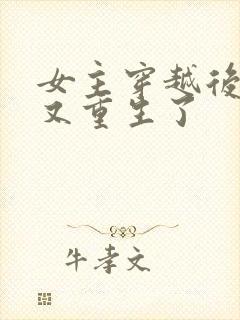 女主穿越後
又重生了
牛孝文